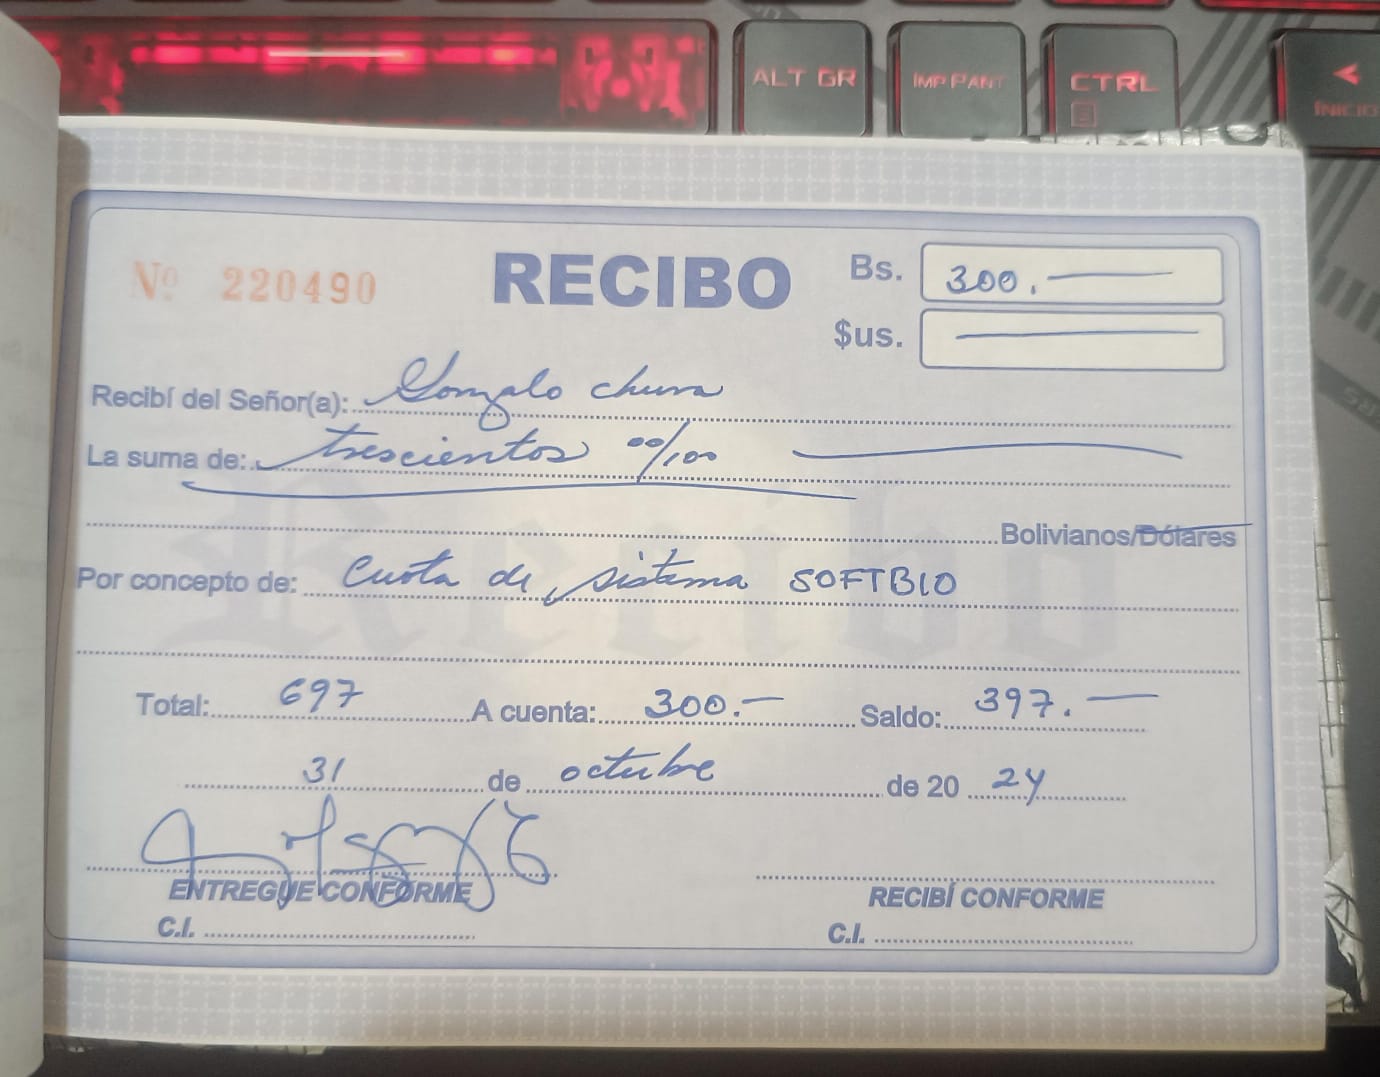 ALT GR
IMP PANT
CTRL
INICIO
Nº 220490
RECIBO
Bs. 300.
$us.
Recibí del Señor(a): Gonzalo Chura
La suma de: trescientos 00/100
Bolivianos/Dólares
Por concepto de: Cuota de sistema SOFTBIO
Recibo
Total: 697 A cuenta: 300.- Saldo: 397.-
31 de octubre de 20 24
ENTREGUE CONFORME
RECIBÍ CONFORME
C.I.
C.I.